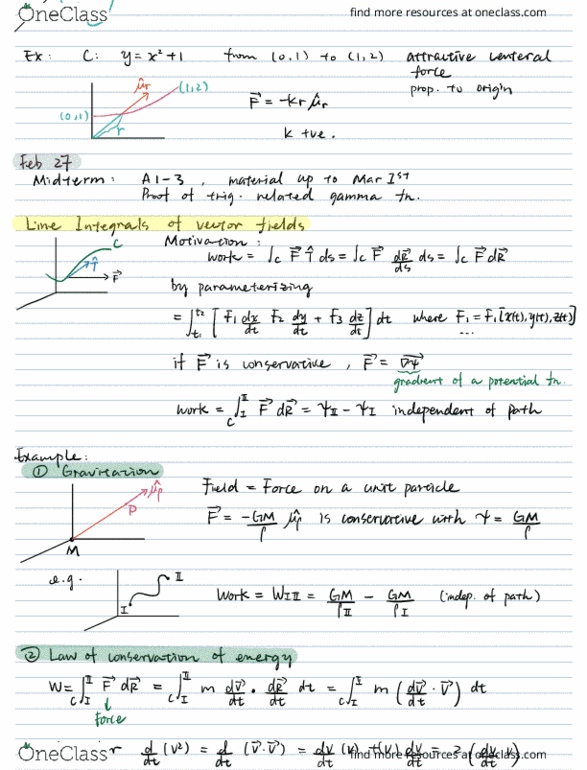 OneClass find more resources at oneclass.com
Ex: C: y = x² + 1 from (0,1) to (1,2) attractive central
force
prop. to origin
μ̂r (1,2)
F⃗ = -kr μ̂r
(0,1)
r
k +ve.
Feb 27
Midterm: A1-3, material up to Mar 1st
Proof of trig. related gamma fn.
Line Integrals of vector fields
Motivation:
C T̂ F⃗
work = ∫c F⃗ T̂ ds = ∫c F⃗ dR⃗/ds ds = ∫c F⃗ dR⃗
by parameterizing
= ∫t₁^t₂ [F₁ dx/dt F₂ dy/dt + F₃ dz/dt] dt where F₁ = F₁[x(t), y(t), z(t)]
...
if F⃗ is conservative, F⃗ = ∇ψ
gradient of a potential fn.
work = c∫I^II F⃗ dR⃗ = ψII - ψI independent of path
Example:
① Gravitation
μ̂ρ
ρ
M
Field = Force on a unit particle
F⃗ = -GM/ρ μ̂ρ is conservative with ψ = GM/ρ
e.g. I II
Work = WI II = GM/ρII - GM/ρI (indep. of path)
② Law of conservation of energy
W = c∫I^II F⃗ dR⃗ = c∫I^II m dv⃗/dt · dR⃗/dt dt = c∫I^II m (dv⃗/dt · v⃗) dt
force
OneClass find more resources at oneclass.com
d/dt (v²) = d/dt (v⃗·v⃗) = dv/dt (v) + (v) dv/dt = 2 (dv/dt v)